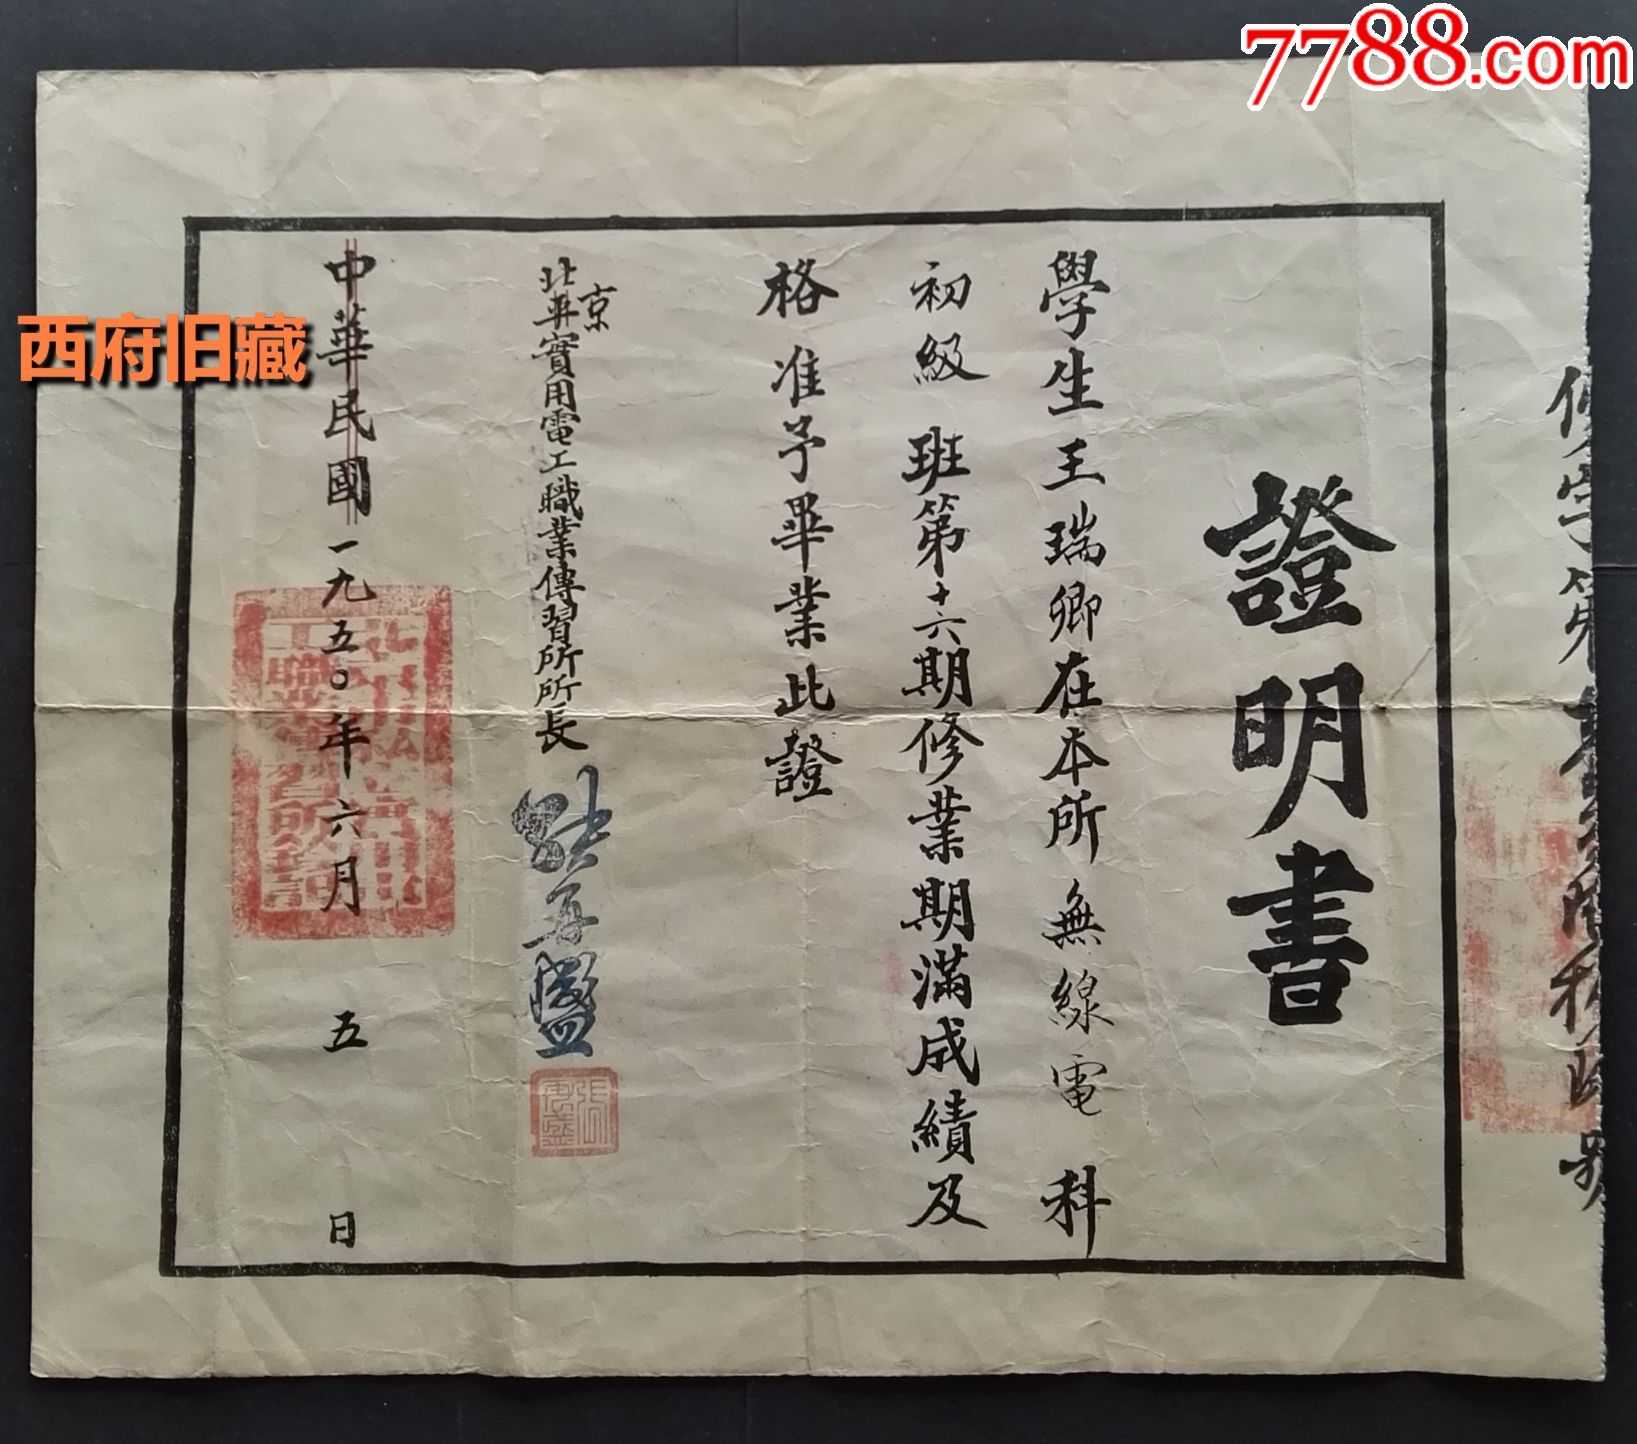 7788.com
西府旧藏
證明書
學生王瑞卿在本所無線電科
初級班第十六期修業期滿成績及
格准予畢業此證
北平京實用電工職業傳習所所長
張壽盛
中華民國一九五〇年六月五日